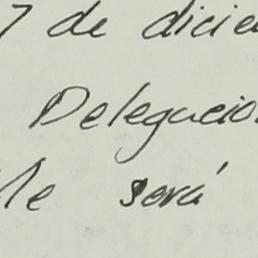 7 de dicie
Delegacio
le será